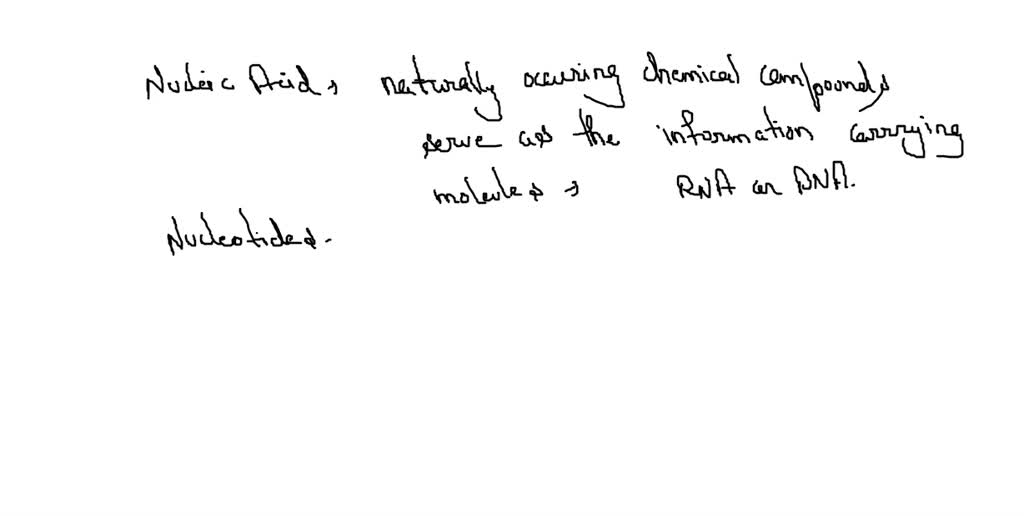 Nucleic Acid, naturally occuring chemical compounds
serve as the information carrying
molecules, RNA or DNA.
Nucleotides.